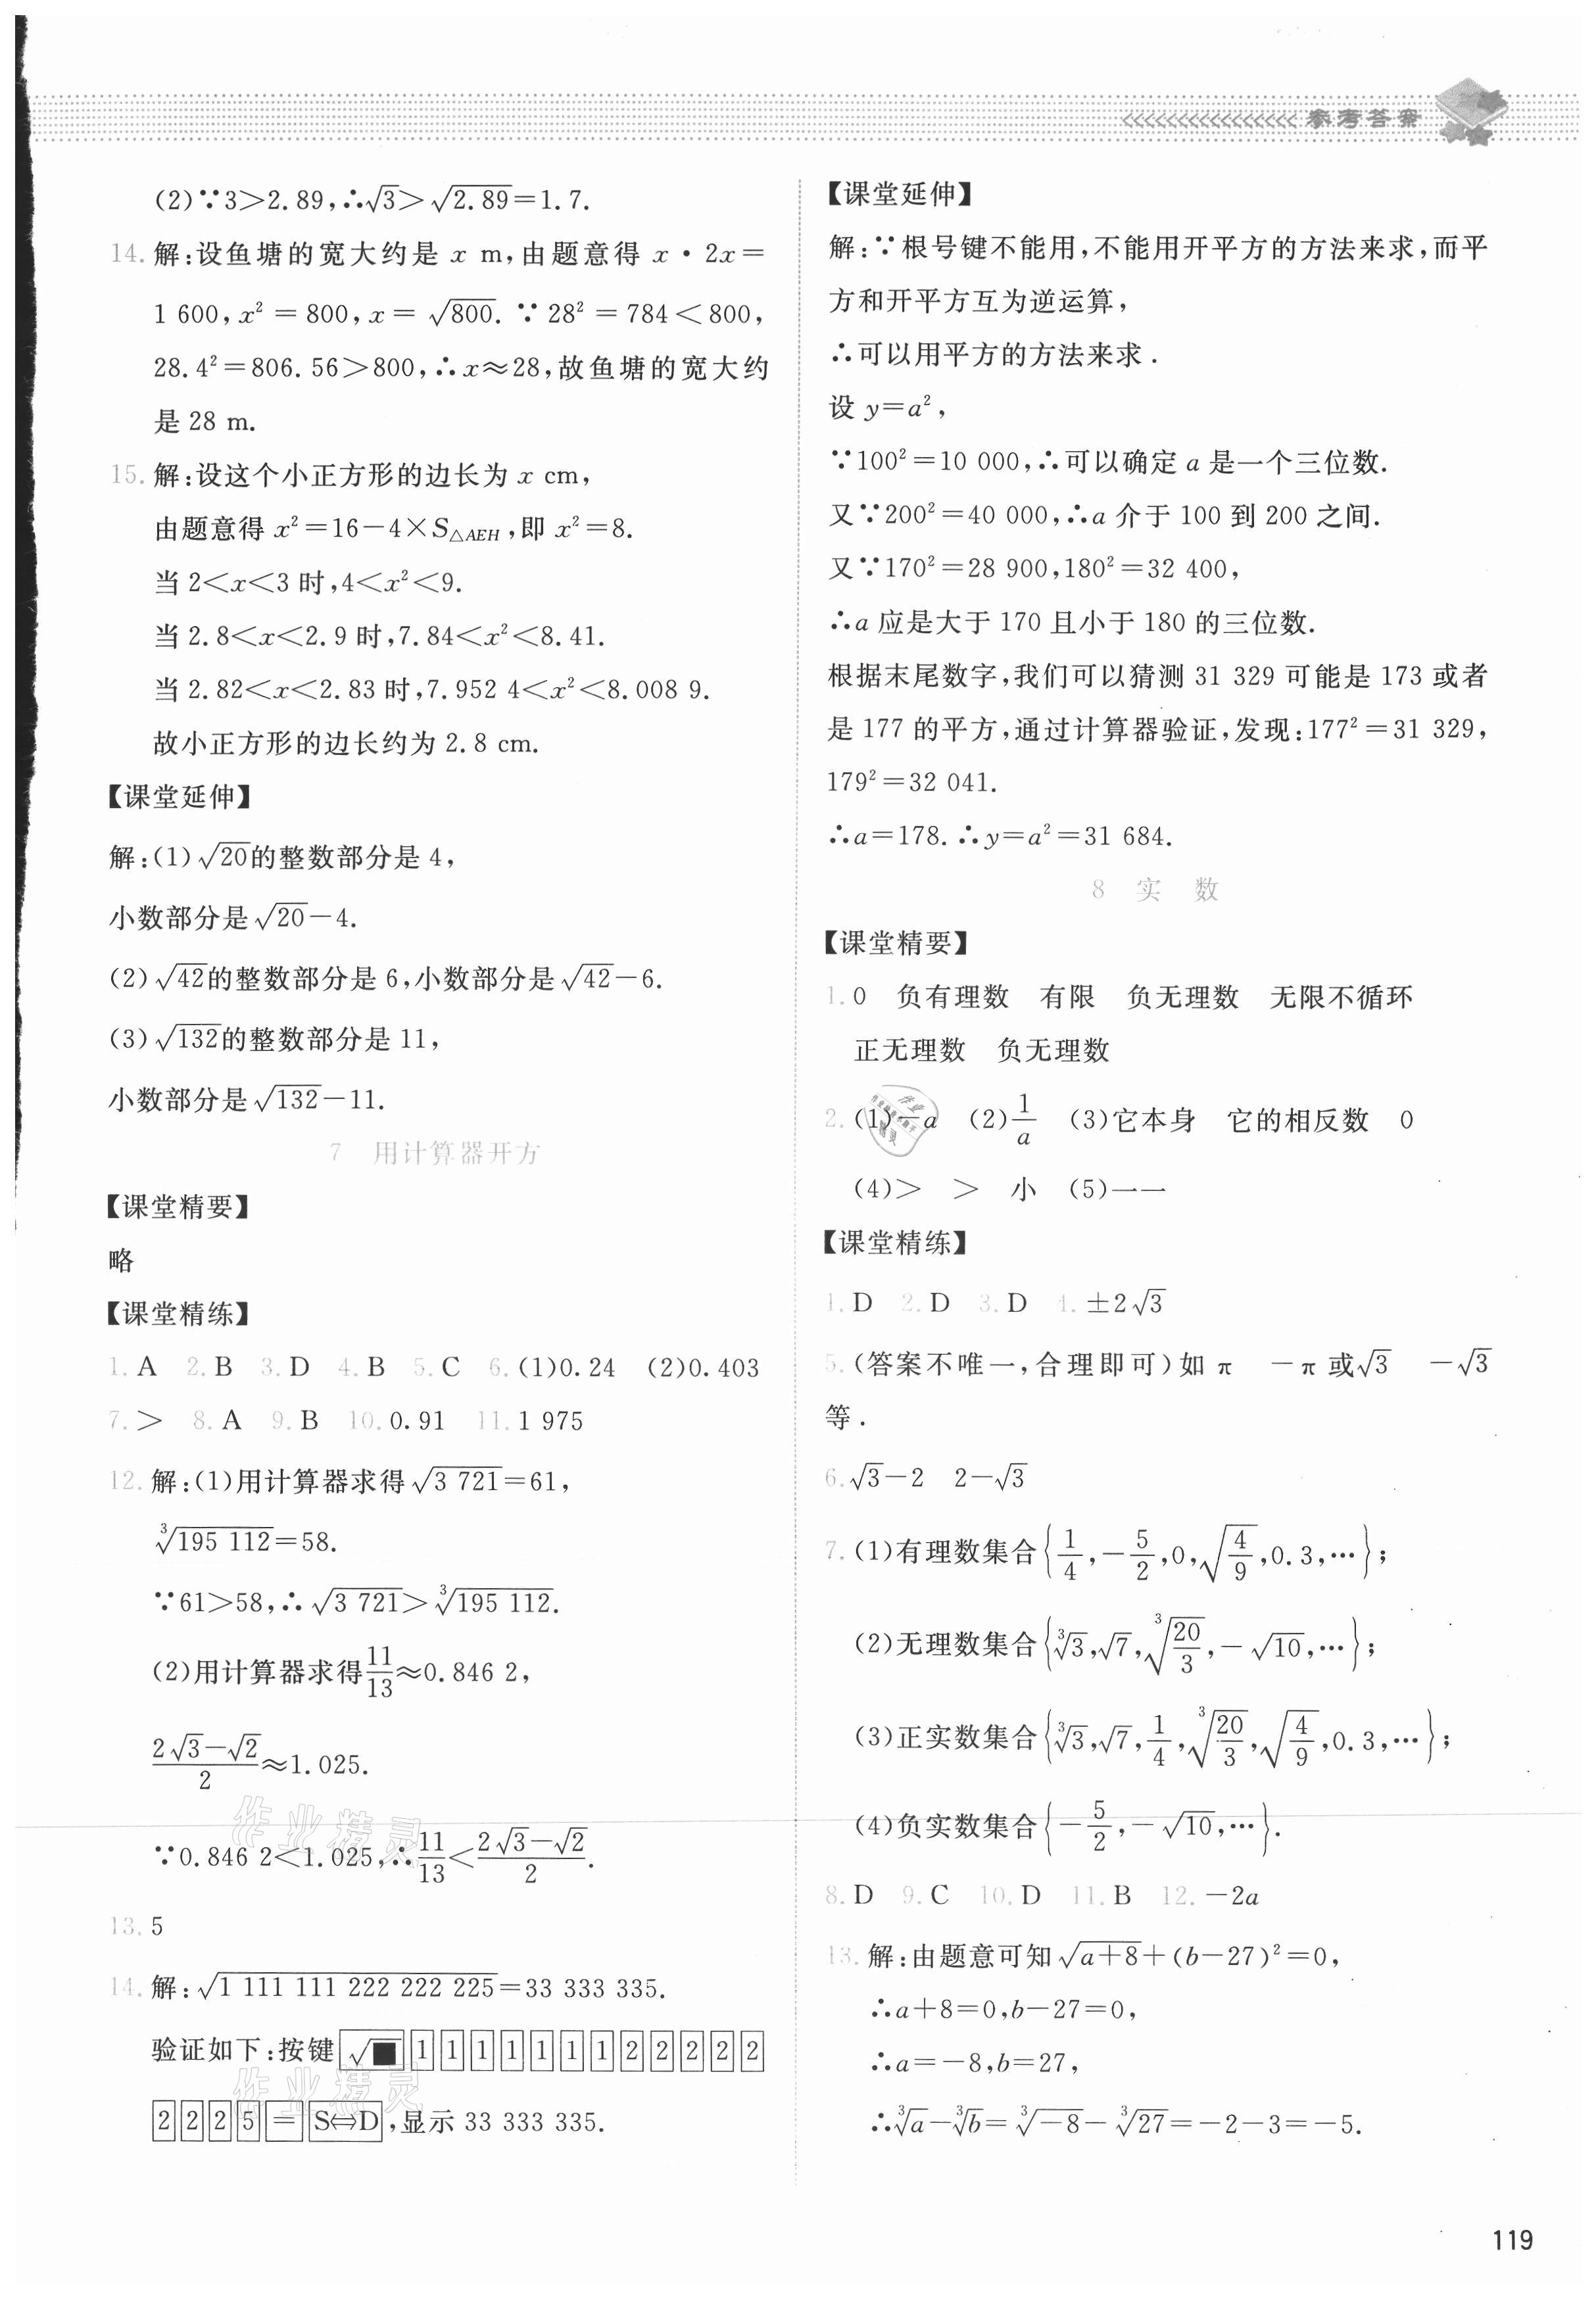 参考答案
(2)∵3>2.89,∴√3>√2.89=1.7.
14. 解:设鱼塘的宽大约是 x m,由题意得 x·2x=
1 600,x²=800,x=√800. ∵28²=784<800,
28.4²=806.56>800,∴x≈28,故鱼塘的宽大约
是 28 m.
15. 解:设这个小正方形的边长为 x cm,
由题意得 x²=16-4×S△AEH,即 x²=8.
当 2<x<3 时,4<x²<9.
当 2.8<x<2.9 时,7.84<x²<8.41.
当 2.82<x<2.83 时,7.952 4<x²<8.008 9.
故小正方形的边长约为 2.8 cm.
【课堂延伸】
解:(1)√20的整数部分是 4,
小数部分是√20-4.
(2)√42的整数部分是 6,小数部分是√42-6.
(3)√132的整数部分是 11,
小数部分是√132-11.
7 用计算器开方
【课堂精要】
略
【课堂精练】
1. A 2. B 3. D 4. B 5. C 6. (1)0.24 (2)0.403
7. > 8. A 9. B 10. 0.91 11. 1 975
12. 解:(1)用计算器求得√3 721=61,
∛195 112=58.
∵61>58,∴√3 721>∛195 112.
(2)用计算器求得11/13≈0.846 2,
(2√3-√2)/2≈1.025.
∵0.846 2<1.025,∴11/13<(2√3-√2)/2.
13. 5
14. 解:√1 111 111 222 222 225=33 333 335.
验证如下:按键 √■ 1 1 1 1 1 1 1 2 2 2 2 2
2 2 2 5 = S⇔D ,显示 33 333 335.
【课堂延伸】
解:∵根号键不能用,不能用开平方的方法来求,而平
方和开平方互为逆运算,
∴可以用平方的方法来求.
设 y=a²,
∵100²=10 000,∴可以确定 a 是一个三位数.
又∵200²=40 000,∴a 介于 100 到 200 之间.
又∵170²=28 900,180²=32 400,
∴a 应是大于 170 且小于 180 的三位数.
根据末尾数字,我们可以猜测 31 329 可能是 173 或者
是 177 的平方,通过计算器验证,发现:177²=31 329,
179²=32 041.
∴a=178.∴y=a²=31 684.
8 实 数
【课堂精要】
1. 0 负有理数 有限 负无理数 无限不循环
正无理数 负无理数
2. (1)-a (2)1/a (3)它本身 它的相反数 0
(4)> > 小 (5)一一
【课堂精练】
1. D 2. D 3. D 4. ±2√3
5. (答案不唯一,合理即可)如 π -π 或√3 -√3
等.
6. √3-2 2-√3
7. (1)有理数集合{1/4,-5/2,0,√(4/9),0.3,…};
(2)无理数集合{∛3,√7,∛(20/3),-√10,…};
(3)正实数集合{∛3,√7,1/4,∛(20/3),√(4/9),0.3,…};
(4)负实数集合{-5/2,-√10,…}.
8. D 9. C 10. D 11. B 12. -2a
13. 解:由题意可知√(a+8)+(b-27)²=0,
∴a+8=0,b-27=0,
∴a=-8,b=27,
∴∛a-∛b=∛-8-∛27=-2-3=-5.
作业精灵
作业精灵
119